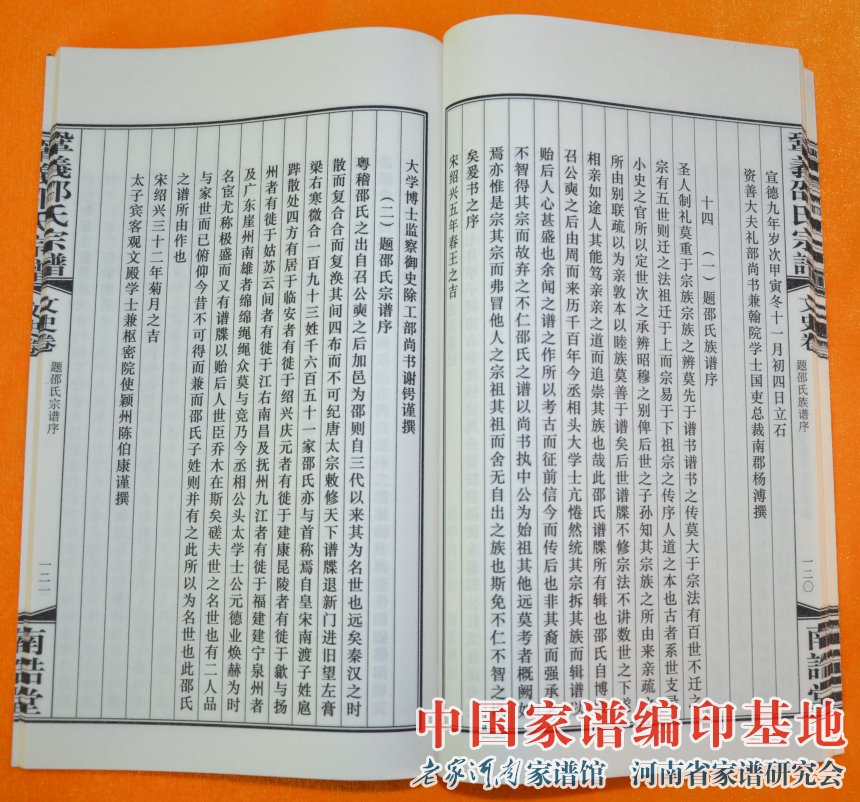 宣德九年岁次甲寅冬十一月初四日立石
资善大夫礼部尚书兼翰院学士国史总裁南郡杨溥撰
十四 （一）题邵氏族谱序
圣人制礼莫重于宗族宗族之辨莫先于谱书谱书之传莫大于宗法有百世不迁之
宗有五世则迁之法祖迁于上而宗易于下祖宗之传序人道之本也古者系世支
小史之官所以定世次之承辨昭穆之别俾后世之子孙知其宗族之所由来亲疏
所由别联疏以为亲敦本以睦族莫善于谱矣后世谱牒不修宗法不讲数世之下
相亲如途人其能笃亲亲之道而追崇其族也哉此邵氏谱牒所有辑也邵氏自博
召公奭之后由周而来历千百年今丞相头大学士亢惓然统其宗拆其族而辑谱以
贻后人心甚盛也余闻之谱之作所以考古而征前信今而传后也非其裔而强承
不智得其宗而故弃之不仁邵氏之谱以尚书执中公为始祖其他远莫考者概阙如
焉亦惟是宗其宗而弗冒他人之宗祖其祖而舍无自出之族也斯免不仁不智之
矣爰书之序
宋绍兴五年春王之吉
大学博士监察御史除工部尚书谢锷谨撰
（二）题邵氏宗谱序
粤稽邵氏之出自召公奭之后加邑为邵则自三代以来其为名世也远矣秦汉之时
散而复合合而复涣其间四布而不可纪唐太宗敕修天下谱牒退新门进旧望左膏
梁右寒微合一百九十三姓千六百五十一家邵氏亦与首称焉自皇宋南渡子姓扈
跸散处四方有居于临安者有徙于绍兴庆元者有徙于建康昆陵者有徙于歙与扬
州者有徙于姑苏云间者有徙于江右南昌及抚州九江者有徙于福建建宁泉州者
及广东崖州南雄者绵绵绳绳众莫与竞乃今丞相公头太学士公元德业焕赫为时
名宦尤称极盛而又有谱牒以贻后人世臣乔木在斯矣磋夫世之名世也有二人品
与家世而已俯仰今昔不可得而兼而邵氏子姓则并有之此所以为名世也此邵氏
之谱所由作也
宋绍兴三十二年菊月之吉
太子宾客观文殿学士兼枢密院使颖州陈伯康谨撰
巩义邵氏宗谱
文史卷
题邵氏族谱序
一二〇
南诰堂
巩义邵氏宗谱
文史卷
题邵氏宗谱序
一二一
南诰堂
中国家谱编印基地
老家河南家谱馆 河南省家谱研究会